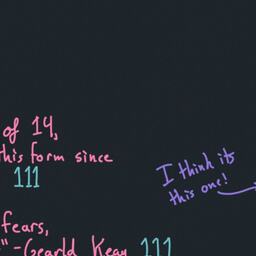 of 14,
this form since
111
I think its
this one!
fears,
"-Gearld Keay 111